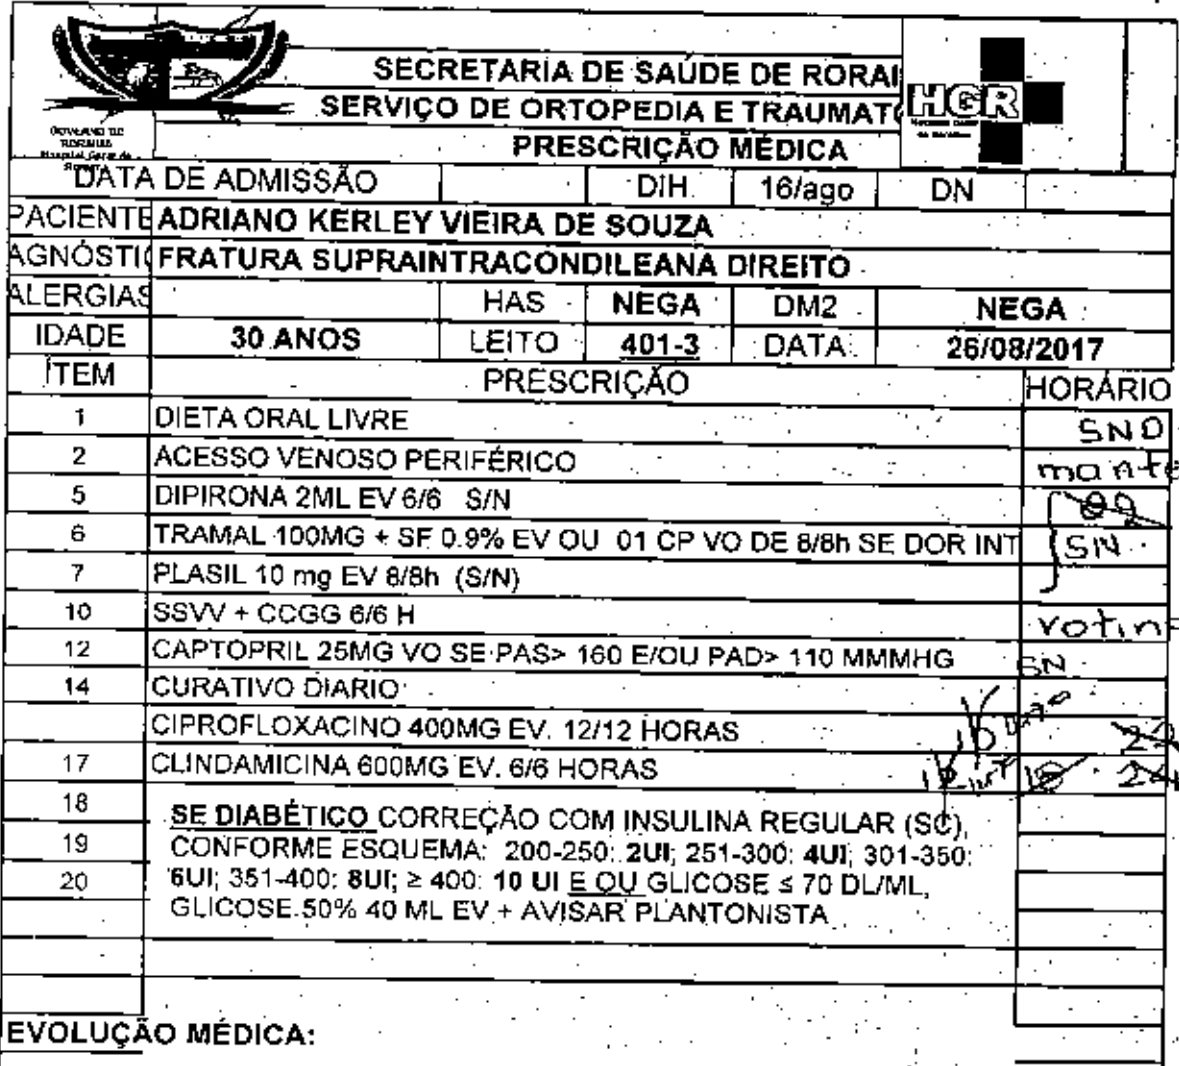 SECRETARIA DE SAÚDE DE RORAI
SERVIÇO DE ORTOPEDIA E TRAUMATO
HGR
PRESCRIÇÃO MÉDICA
GOVERNO DE
RORAIMA
Hospital Geral de
DATA DE ADMISSÃO DIH 16/ago DN
PACIENTE ADRIANO KERLEY VIEIRA DE SOUZA
AGNÓSTI FRATURA SUPRAINTRACONDILEANA DIREITO
ALERGIAS HAS NEGA DM2 NEGA
IDADE 30 ANOS LEITO 401-3 DATA: 26/08/2017
ITEM PRESCRIÇÃO HORÁRIO
1 DIETA ORAL LIVRE SND
2 ACESSO VENOSO PERIFÉRICO mante
5 DIPIRONA 2ML EV 6/6 S/N
6 TRAMAL 100MG + SF 0.9% EV OU 01 CP VO DE 8/8h SE DOR INT SN
7 PLASIL 10 mg EV 8/8h (S/N)
10 SSVV + CCGG 6/6 H rotina
12 CAPTOPRIL 25MG VO SE PAS> 160 E/OU PAD> 110 MMMHG SN
14 CURATIVO DIARIO
CIPROFLOXACINO 400MG EV. 12/12 HORAS 22
17 CLINDAMICINA 600MG EV. 6/6 HORAS 18 24
18
SE DIABÉTICO CORREÇÃO COM INSULINA REGULAR (SC),
19 CONFORME ESQUEMA: 200-250: 2UI; 251-300: 4UI; 301-350:
20 6UI; 351-400: 8UI; ≥ 400: 10 UI E OU GLICOSE ≤ 70 DL/ML,
GLICOSE 50% 40 ML EV + AVISAR PLANTONISTA
EVOLUÇÃO MÉDICA: